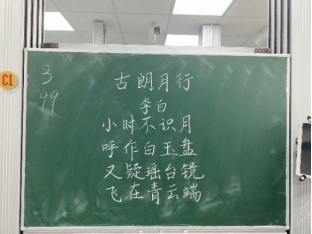 C1
3
99
古朗月行
李白
小时不识月
呼作白玉盘
又疑瑶台镜
飞在青云端